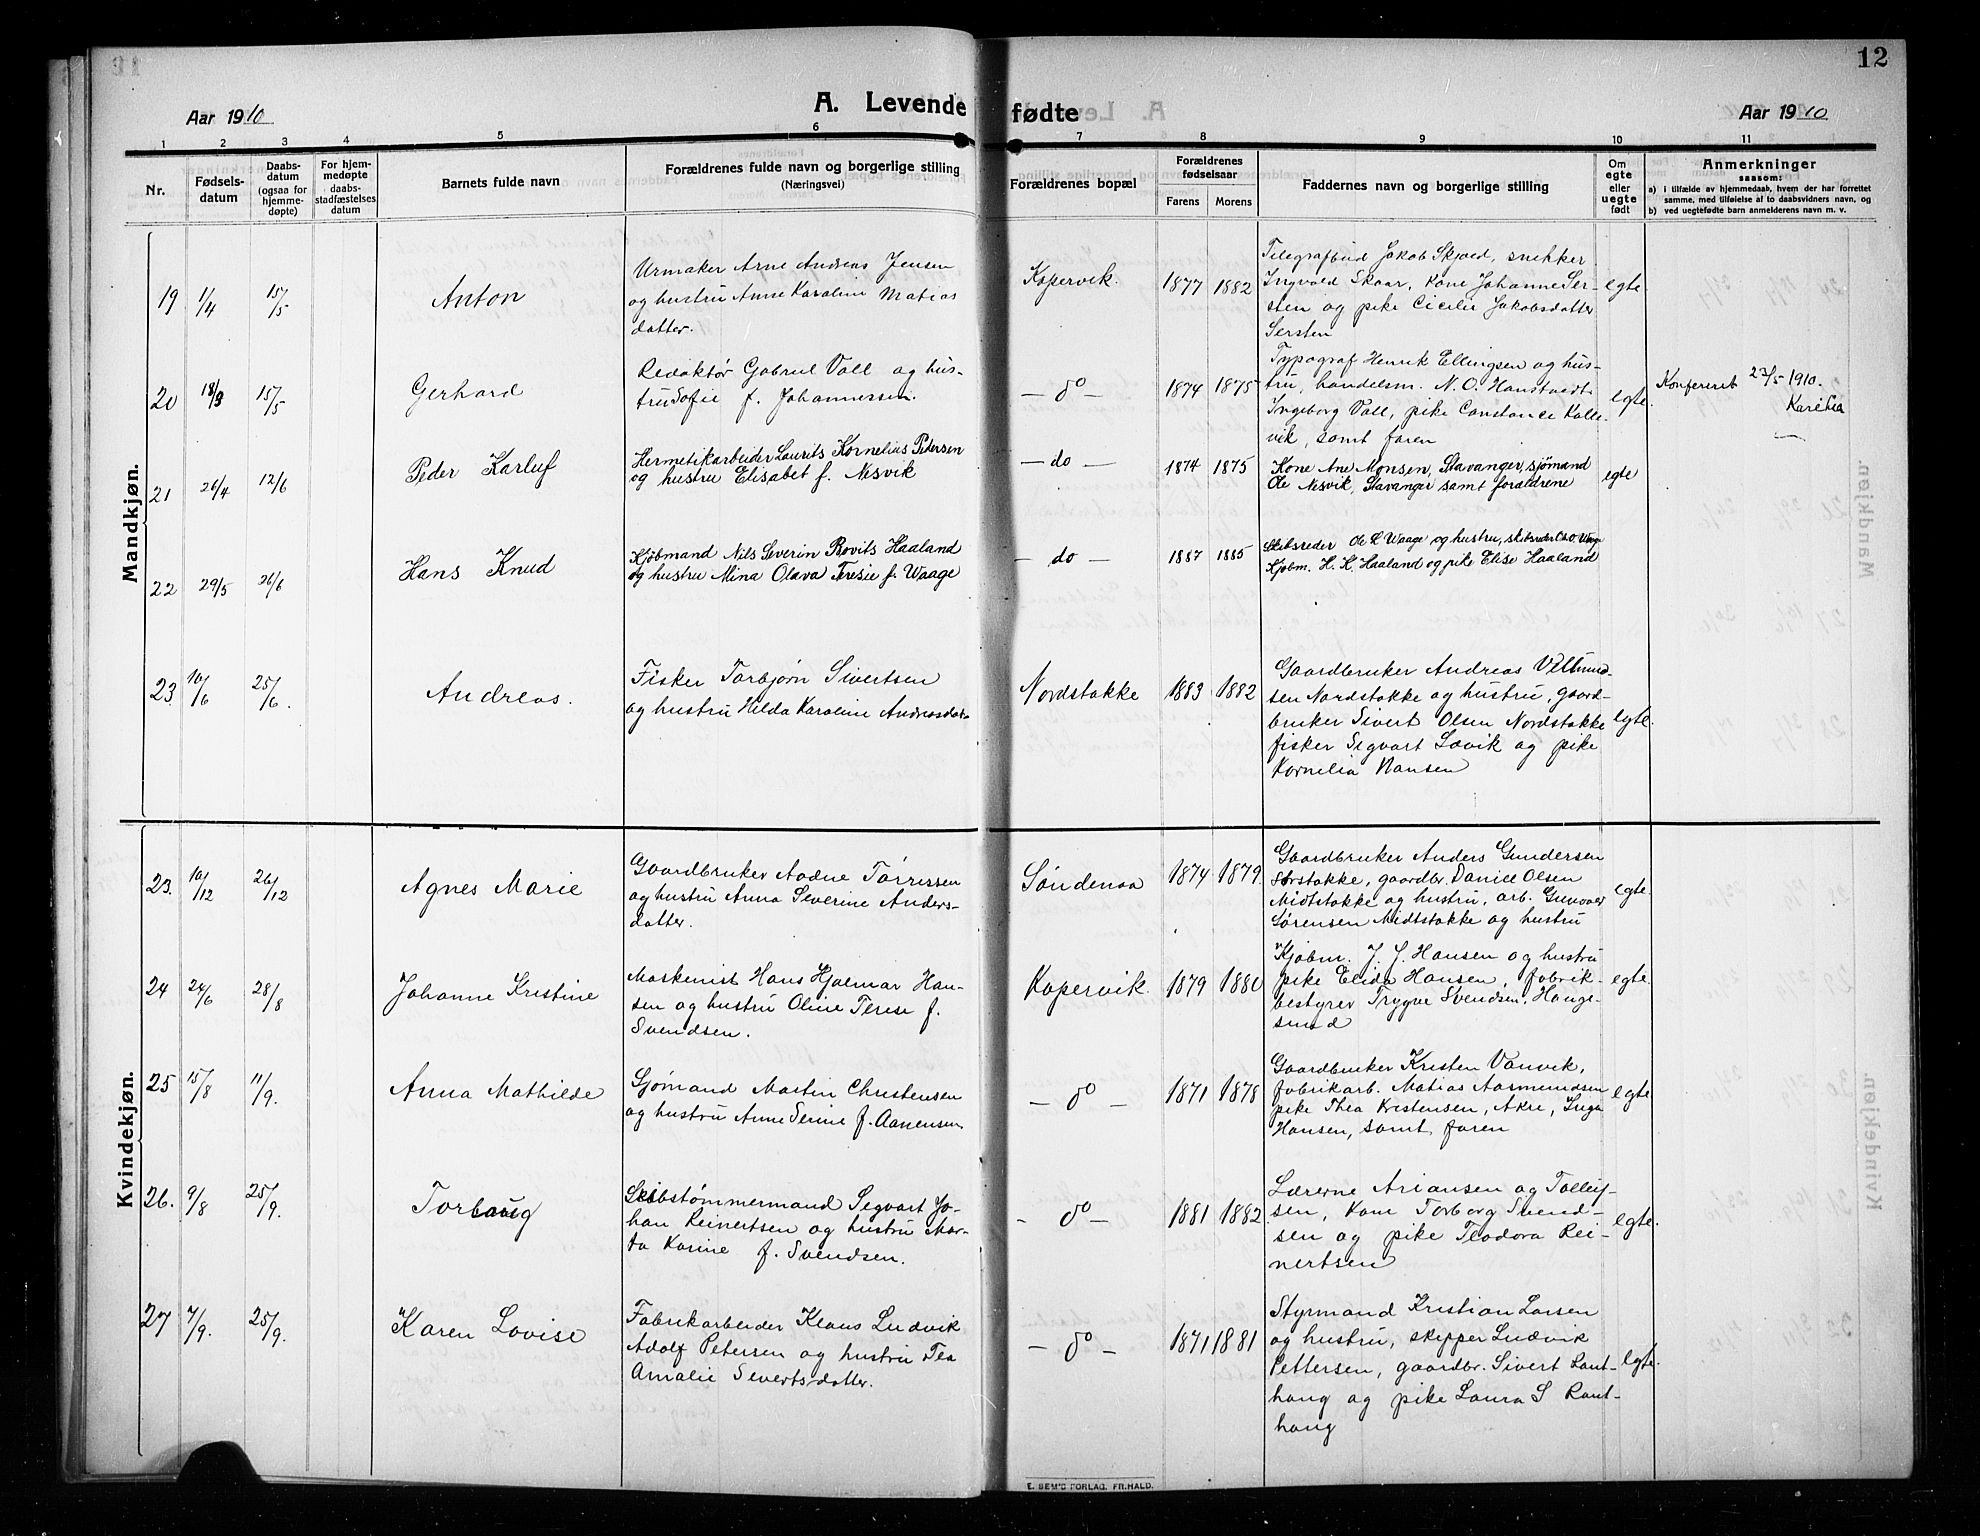 12
Aar 1910
A. Levende fødte
Aar 1910
1 2 3 4 5 6 7 8 9 10 11
Nr.
Fødsels-
datum
Daabs-
datum
(ogsaa for
hjemme-
døpte)
For hjem-
medøpte
daabs-
stadfæstelses
datum
Barnets fulde navn
Forældrenes fulde navn og borgerlige stilling
(Næringsvei)
Forældrenes bopæl
Forældrenes
fødselsaar
Farens Morens
Faddernes navn og borgerlige stilling
Om
egte
eller
uegte
født
Anmerkninger
saasom:
a) i tilfælde av hjemmedaab, hvem der har forrettet
samme, med tilføielse af to daabsvidners navn, og
b) ved uegtefødte barn anmelderens navn m. v.
Mandkjøn.
19 1/4 15/5 Anton
Urmaker Arne Andreas Jensen
og hustru Anne Karoline Matias
datter.
Kopervik. 1877 1882
Telegrafbud Jakob Skjold, snekker
Ingvald Skaar, Kone Johanne Ser-
sten og pike Cicilie Jakobsdatter
Sersten
egte
20 18/3 15/5 Gerhard
Redaktør Gabriel Vall og hus-
tru Sofie f. Johannessen.
— do — 1874 1875
Typograf Henrik Ellingsen og hus-
tru, handelsm. N. O. Hanstvedt
Ingeborg Vall, pike Constance Kalle-
vik, samt faren
egte.
Konfereret 23/5 1910.
21 26/4 12/6 Peder Karluf
Hermetikarbeider Laurits Kornelius Pedersen
og hustru Elisabet f. Nesvik
— do — 1874 1875
Kone Ane Monsen, Stavanger, sjømand
Ole Nesvik, Stavanger samt forældrene
egte
22 29/5 26/6 Hans Knud
Kjøbmand Nils Severin Rovits Haaland
og hustru Mina Olava Teresie f. Waage
— do — 1887 1885
Skibsreder Ole K Waage og hustru, skibsreder
Kjøbm. H. K. Haaland og pike Elise Haaland
23 10/6 25/6. Andreas.
Fisker Torbjørn Sivertsen
og hustru Hilda Karoline Andreasdatr
Nordstokke 1883 1882
Gaardbruker Andreas Villumd-
sen Nordstokke og hustru, gaard-
bruker Sivert Olsen Nordstokke
fisker Sigvart Lævik og pike
Kornelia Hansen
egte.
Kvindekjøn.
23. 10/12 26/12 Agnes Marie
Gaardbruker Aadne Tørressen
og hustru Anna Severine Anders-
datter.
Søndenaa 1874 1879
Gaardbruker Anders Gundersen
Sørstokke, gaardbr. Daniel Olsen
Midtstokke og hustru, arb. Gunvaer
Sørensen Midtstokke og hustru
egte.
24 24/6 28/8 Johanne Kristine
Maskenist Hans Hjalmar Han-
sen og hustru Oline Terese f.
Svendsen.
Kopervik. 1879 1880
Kjøbm. J. J. Hansen og hustru
pike Elida Hansen, fabrik-
bestyrer Trygve Svendsen, Hauge-
sund
egte.
25 15/8 11/9. Anna Mathilde
Sjømand Martin Christensen
og hustru Anne Serine f. Aanensen
— do — 1871 1878
Gaardbruker Kristen Vanvik,
fabrikarb. Matias Aarmundsen
pike Thea Kristensen, Akre, Inga
Hansen, samt faren
egte
26. 9/8 25/9. Torbaug
Skibstømmermand Segvart Jo-
han Reinertsen og hustru Mar-
ta Karine f. Svendsen.
- do — 1881 1882
Lærerne Ariansen og Tollef-
sen, Kone Torborg Svend-
sen og pike Teodora Rei-
nertsen
egte.
27 7/9. 25/9. Karen Lovise
Fabrikarbeider Klaus Ludvik
Adolf Petersen og hustru Tea
Amalie Severtsdatter.
— do — 1871 1881
Styrmand Kristian Larsen
og hustru, skipper Ludvik
Pettersen, gaardbr. Sivert Raut-
haug og pike Laura S Raut-
haug
egte.
E. SEM'S FORLAG. FR.HALD.